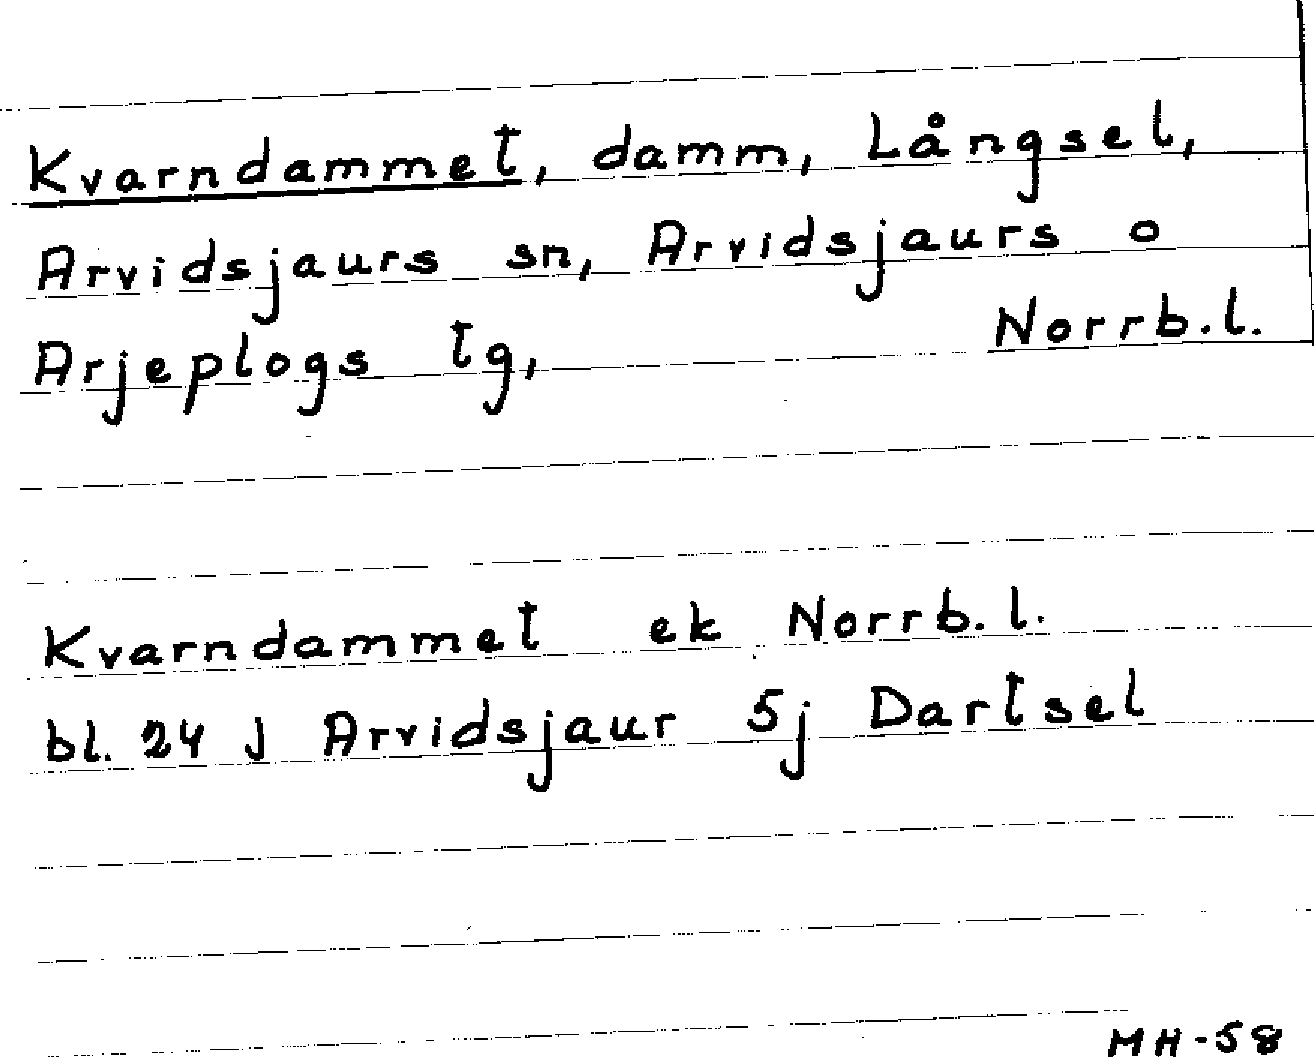 Kvarndammet, damm, Långsel,
Arvidsjaurs sn, Arvidsjaurs o
Arjeplogs tg, Norrb.l.
Kvarndammet ek Norrb.l.
bl. 24 J Arvidsjaur 5j Dartsel
MH-58